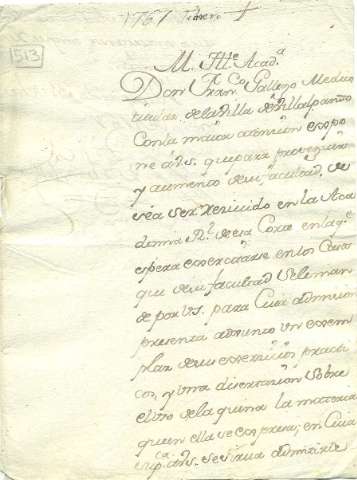 1767 Febrero
513
M. Itte. Acad.a
Don Fran.co Gallego Medico
titular de la Villa de Villalpando
Con la maior atencion espo
ne a Vs. que para
y aumento de su facultad, de
sea ser rezivido en la Aca
demia R.l de esa Corte en la q.e
espera exercitarse en los Casos
que de su facultad Se le man
de por Vs. para Cuia admision
presenta adjunto un exem
plar de sus exercicios practi
cos, y una disertazion Sobre
el uso de la quina la materia
que en ella se expresa, en Cuia
a Vs. se sirva admitirle